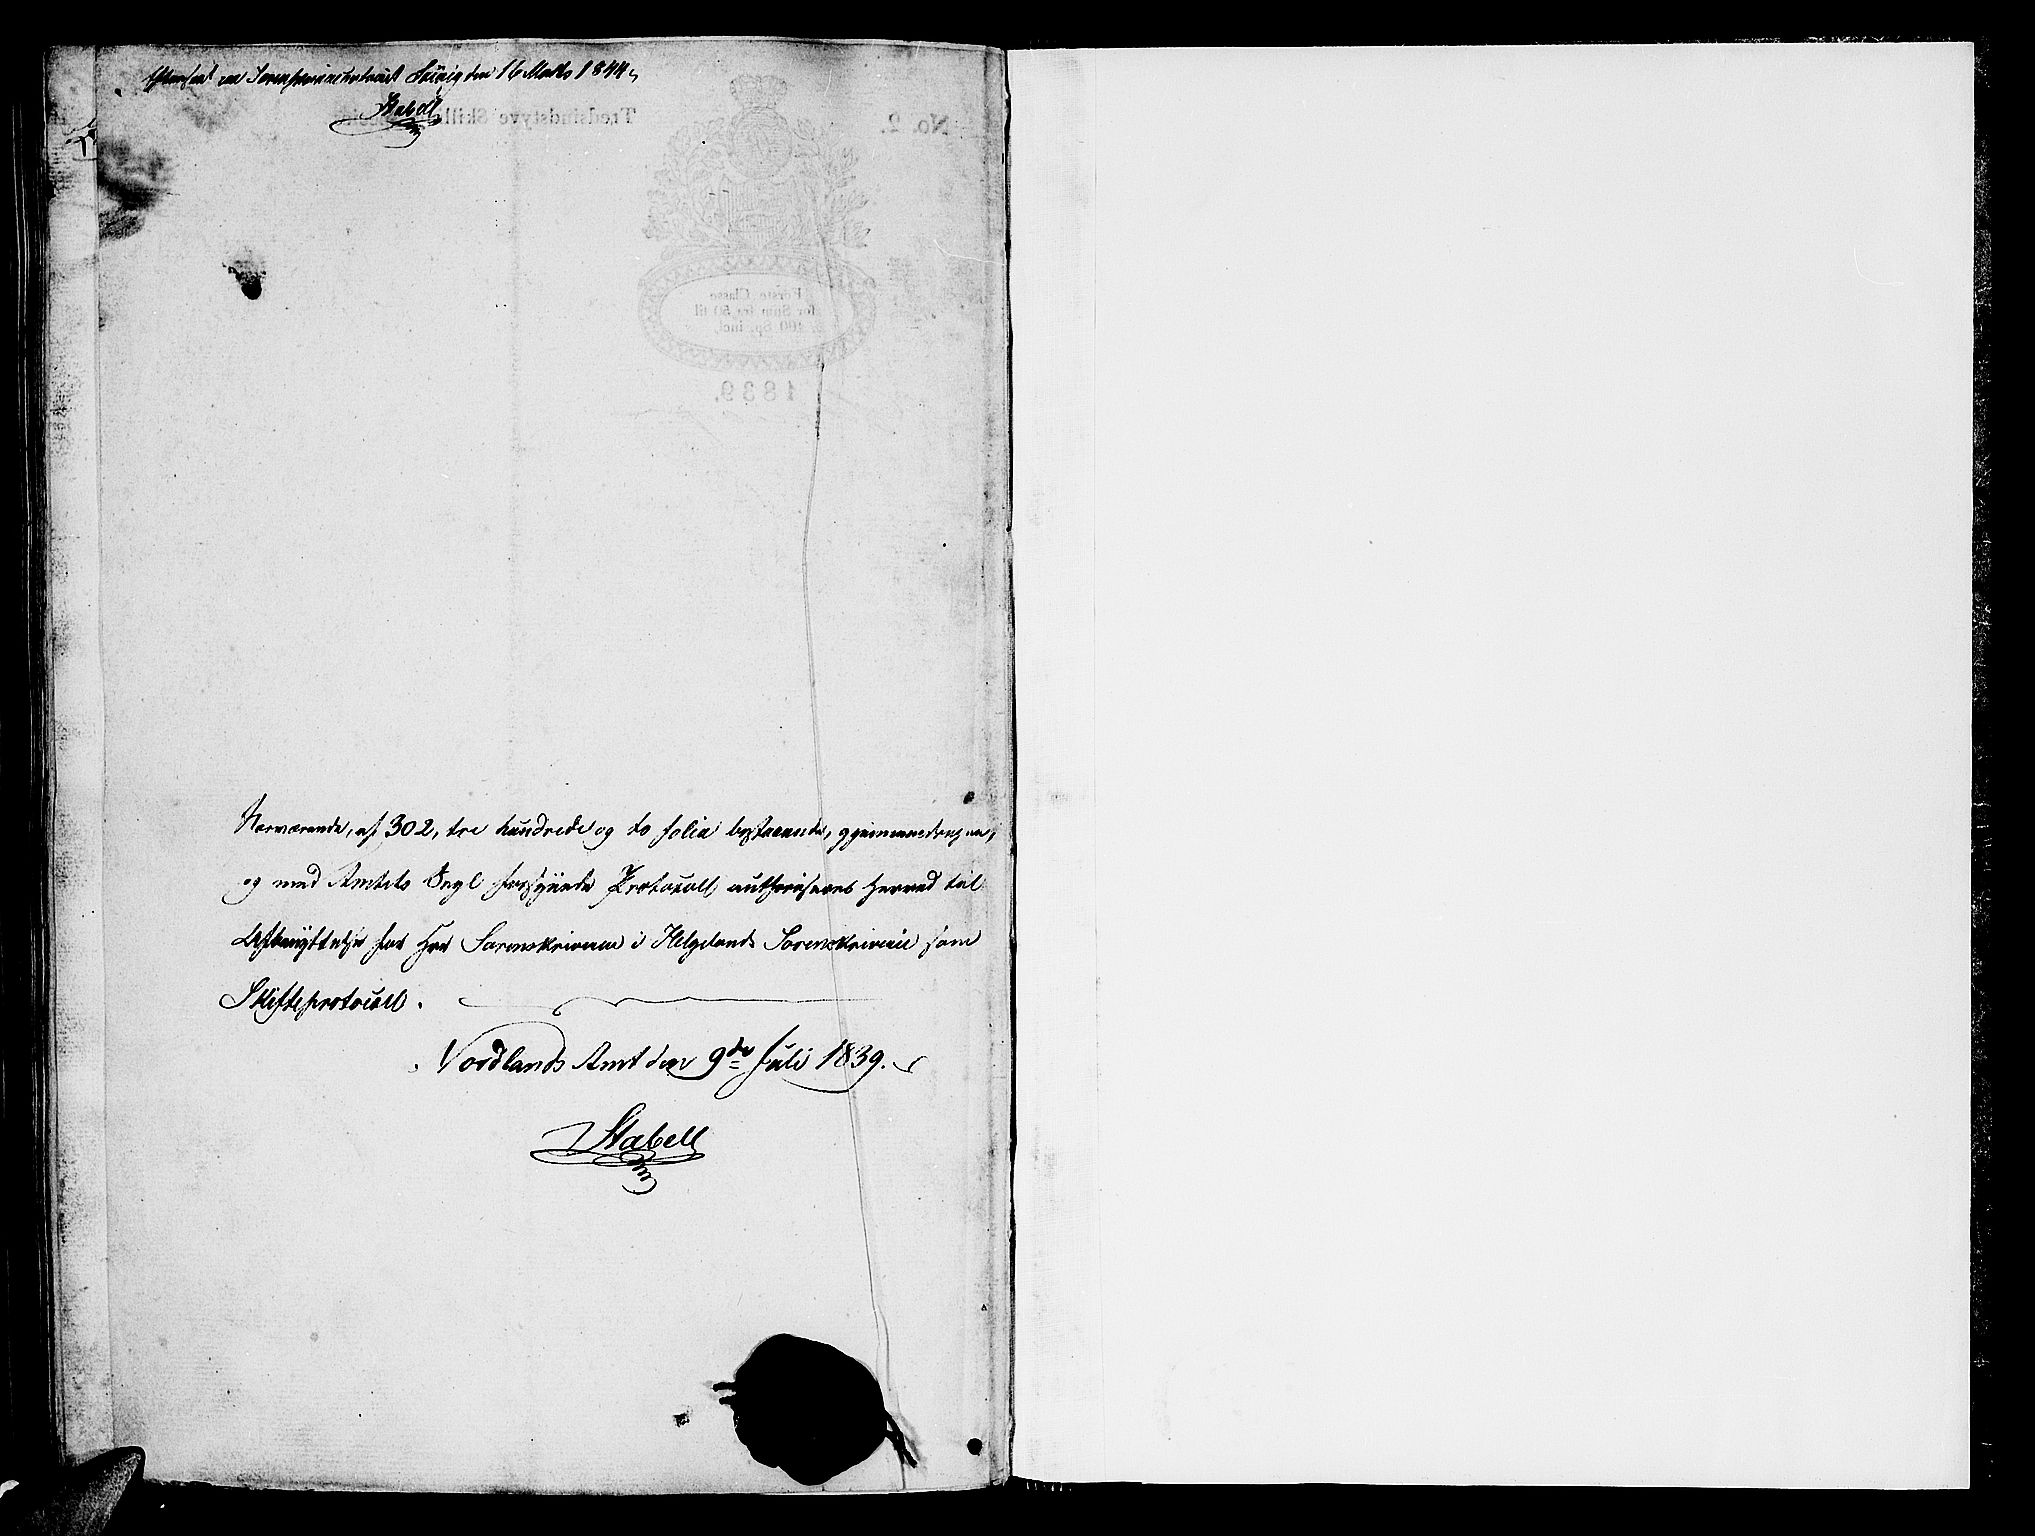 Eftersat ved Sorenskriverembedet den 16 Marts 1844
Stabell
No. 2. Tredsindstyve Skilling
Første Classe
for Sum fra 50 til
100 Sp. incl.
1839.
Nærværende, af 302, tre hundrede og to folia bestaaende, gjennemdragne,
og med Amtets Segl forsynede Protocoll authoriseres herved til
Afbenyttelse for Hr Sorenskriveren i Helgelands Sorenskriverie som
Skifteprotocoll.
Nordlands Amt den 9de Juli 1839.
Stabell